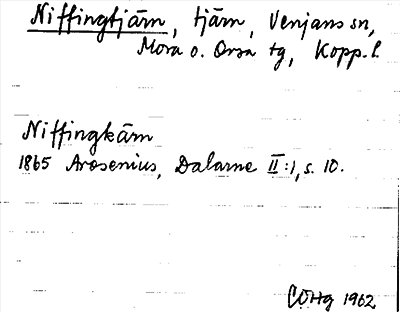 Niffingtjärn, tjärn, Venjans sn,
Mora o. Orsa tg, Kopp. l.
Niffingkärn
1865 Arosenius, Dalarne II:1, s. 10.
1962